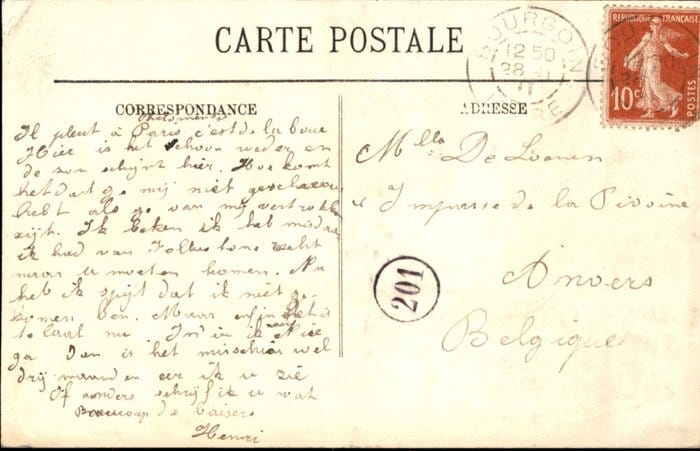 CARTE POSTALE
CORRESPONDANCE
ADRESSE
Il pleut à Paris c'est de la boue
Hier is het schoon weder en
de son schijnt hier. Hoe komt
het dat ge mij niet geschreven
hebt als ge van mij vertrokken
zijt. Ik beken ik heb misdaan
ik had van Folkestone recht
naar u moeten komen. Nu
heb ik spijt dat ik niet ge-
komen ben. Maar enfin het is
te laat nu ik naar Nice
ga Dan is het misschien wel
drij maanden eer ik u zie
Of anders schrijf ik u wat
Beaucoup de baisers
Henri
Mlle De Loenen
Impasse de la Pivoine
Anvers
Belgique
201
BOURGOIN
12 50
28
11
ISERE
REPUBLIQUE FRANCAISE
10c
POSTES